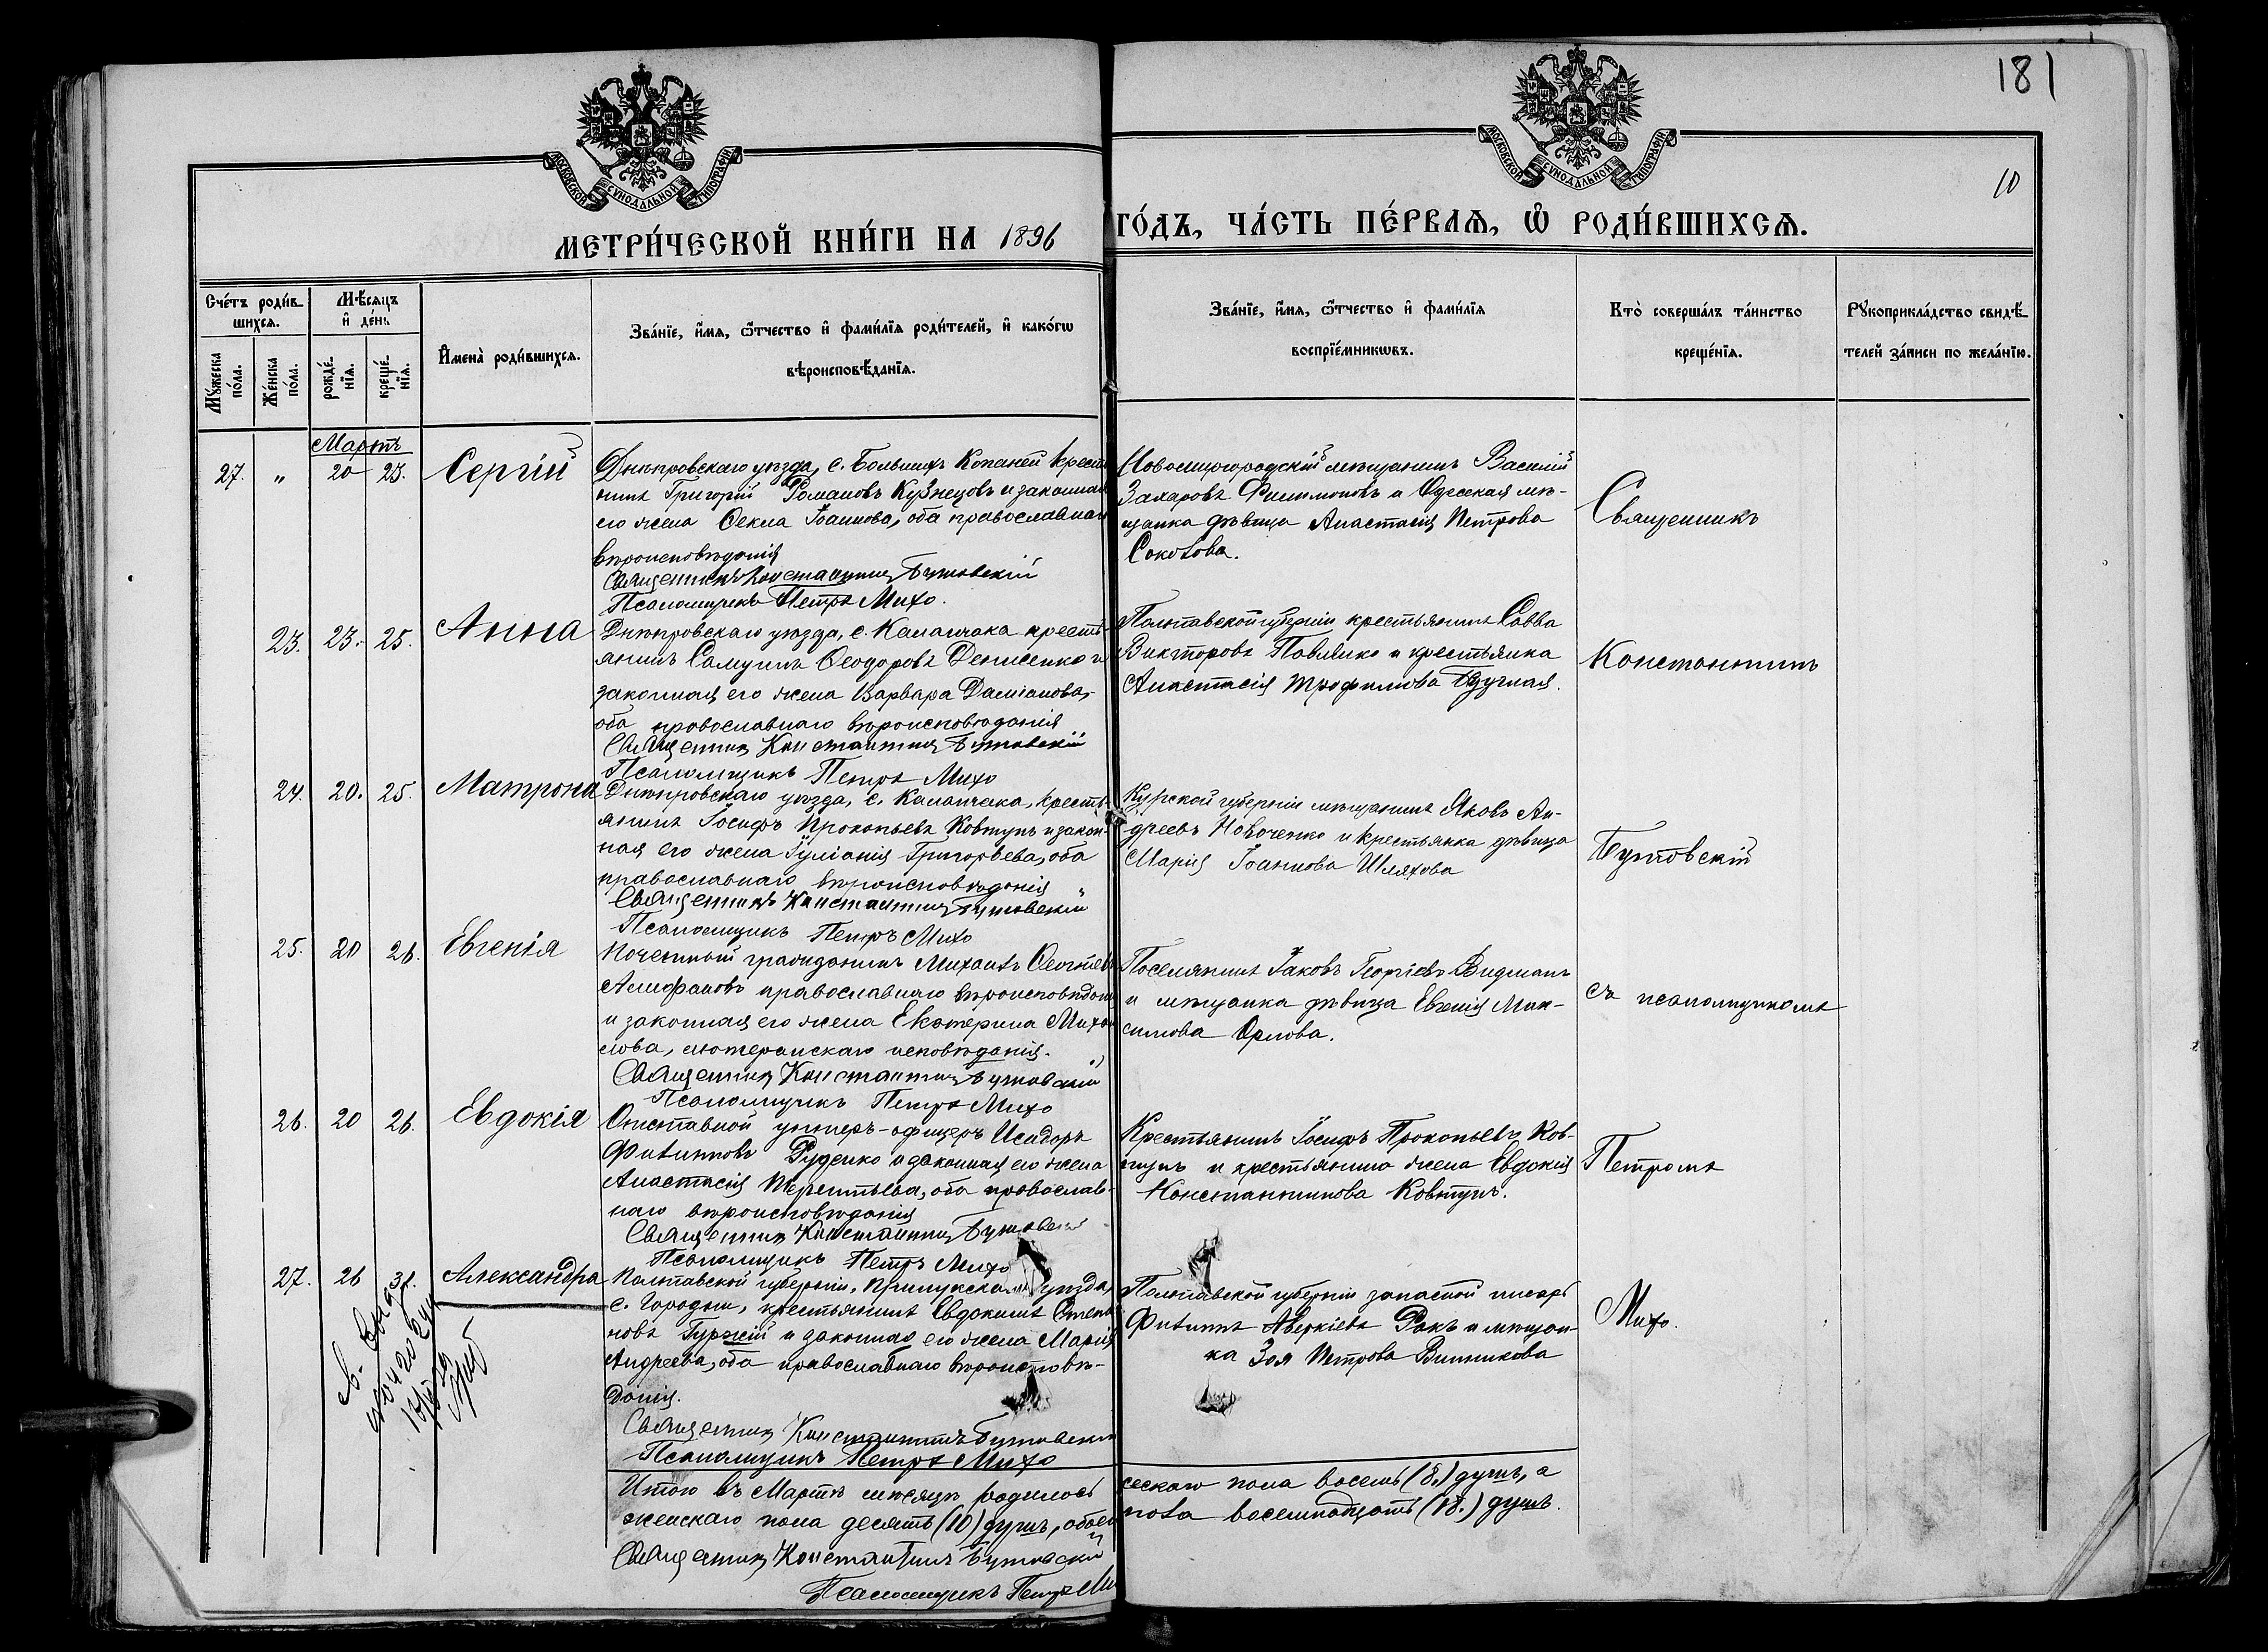 181
10
МОСКОВСКОЙ СѴНОДАЛЬНОЙ ТИПОГРАФІИ
МОСКОВСКОЙ СѴНОДАЛЬНОЙ ТИПОГРАФІИ
МЕТРИ́ЧЕСКОЙ КНИ́ГИ НА 1896 ГО́ДЪ, ЧА́СТЬ ПЕ́РВАѦ, Ѡ҆ РОДИ́ВШИХСѦ.
Сче́тъ роди́в-
шихсѧ.
Мѣ́сяцъ
и҆ де́нь
Мꙋ́жеска по́ла.
Же́нска по́ла.
рожде́-
нїѧ.
креще́-
нїѧ.
И҆мена̀ роди́вшихсѧ.
Зва́нїе, и҆́мѧ, ѻ҆́тчество и҆ фами́лїѧ роди́телей, и҆ како́гѡ
вѣроисповѣ́данїѧ.
Зва́нїе, и҆́мѧ, ѻ҆́тчество и҆ фами́лїѧ
воспрїе́мникѡвъ.
Кто̀ соверша́лъ та́инство
креще́нїѧ.
Рꙋкоприкла́дство свидѣ́-
телей за́писи по жела́нїю.
Мартъ
27. " 20 23. Сергій
Днѣпровскаго уѣзда, с. Большихъ Копаней крест
нинъ Григорій Романовъ Кузнецовъ и законная
его жена Ѳекла Іоаннова, оба православнаго
вѣроисповѣданія
Священникъ Константинъ Бутовскій
Псаломщикъ Петръ Михо.
Захаровъ Филимоновъ и Одесская мѣ-
щанка дѣвица Анастасія Петрова
Соколова.
Священникъ
23. 23. 25. Анна
Днѣпровскаго уѣзда, с. Каланчака кресть-
янинъ Самуилъ Ѳеодоровъ Денисенко и
законная его жена Варвара Даміанова,
оба православнаго вѣроисповѣданія
Священникъ Константинъ Бутовскій
Псаломщикъ Петръ Михо
Полтавской губерніи крестьянинъ Савва
Викторовъ Павленко и крестьянка
Анастасія Трофимова
Константинъ
24. 20. 25. Матрона
Днѣпровскаго уѣзда, с. Каланчака, кресть-
янинъ Іосифъ Прокопьевъ Ковтунъ и закон-
ная его жена Іуліанія Григорьева, оба
православнаго вѣроисповѣданія
Священникъ Константинъ Бутовскій
Псаломщикъ Петръ Михо
Курской губерніи мѣщанинъ Яковъ Ан-
дреевъ и крестьянка дѣвица
Марія Іоаннова Шляхова
Бутовскій
25. 20 26. Евгенія
Почетный гражданинъ Михаилъ
православнаго вѣроисповѣдан
и законная его жена Екатерина Михаи
лова, лютеранскаго исповѣданія.
Священникъ Константинъ Бутовскій
Псаломщикъ Петръ Михо
Поселянинъ Іаковъ Георгіевъ Видманъ
и мѣщанка дѣвица Евгенія Мак-
симова Орлова.
съ псаломщикомъ
26. 20 26. Евдокія
Отставной унтеръ-офицеръ Исидоръ
Филипповъ Руденко и законная его жена
Анастасія Терентьева, оба православ-
наго вѣроисповѣданія
Священникъ Константинъ Бутовскій
Псаломщикъ Петръ Михо
Крестьянинъ Іосифъ Прокопьевъ Ков-
тунъ и крестьянина жена Евдокія
Константинова Ковтунъ.
Петромъ
27. 26 31. Александра
Полтавской губерніи, Прилукскаго уѣзда,
с. Городни, крестьянинъ Евдокимъ Степа
новъ Гуржій и законная его жена Марія
Андреева, оба православнаго вѣроисповѣ-
данія.
Священникъ Константинъ Бутовскій
Псаломщикъ Петръ Михо
Полтавской губерніи запасной писарь
Филиппъ Аверкіевъ Ракъ и мѣщан-
ка Зоя Петрова Винникова
Михо.
Итого въ Мартѣ мѣсяцѣ родилось ческаго пола восемь (8.) душъ, а
женскаго пола десять (10) душъ, обоего пола восемнадцать (18.) душъ.
Священникъ Константинъ Бутовскій
Псаломщикъ Петръ Ми